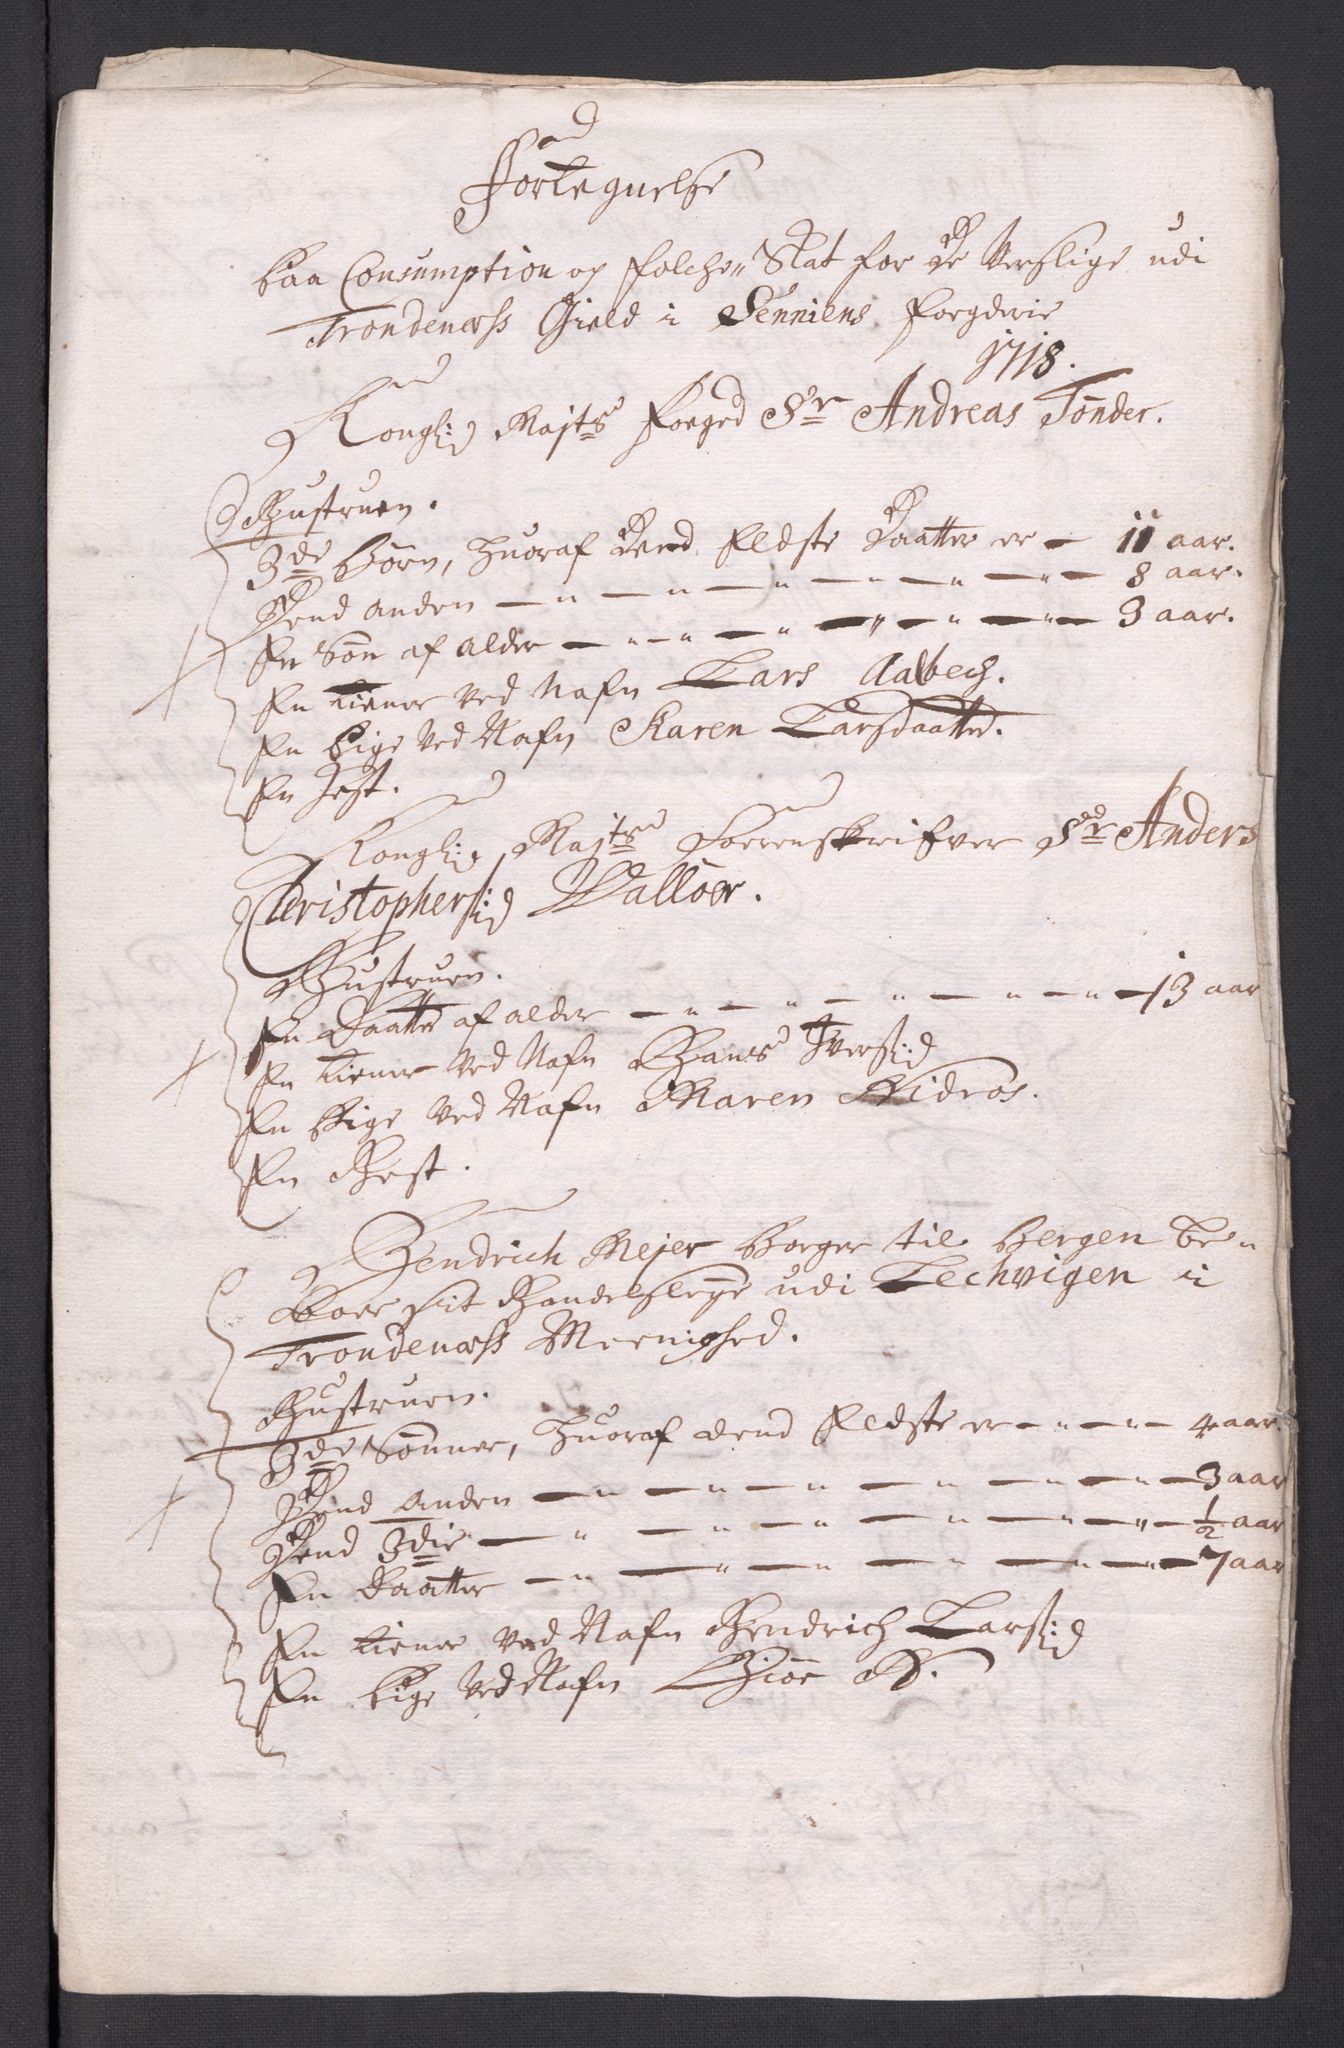 Fortegnelse
Paa Consumption og Folche Skat for De Verslige udi
Trondenæss Gield i Senniens Fogderie
1718.
Kongl: Maÿts Foeged Sr Andreas Tönder.
Hustruen.
3de Börn, Huoraf Dend Eldste Daatter er — 11 aar.
Dend anden — " — " — " — " — " — 8 aar.
En Sön af alder — " — " — " — " — " — 3 aar.
En tiener ved Nafn Lars Aabech.
En Pige ved Nafn Karen Larsdaatter.
En Hest.
Kongl: Maÿts Sorenskrifver Sr Anders
Christophers: Dalloer.
Hustruen.
En Daatter af alder — " — " — " — " — " — 13 aar
En tiener ved Nafn Hans Ivers:
En Pige ved Nafn Maren Nidros.
En Hest.
Hendrich Mejer Borger til Bergen Be-
boer sit Handelsleÿe udi Lechvigen i
Trondenæss Meenighed.
Hustruen.
3de Sönner, Huoraf dend Eldste er — " — " — 4 aar.
Dend anden — " — " — " — " — " — 3 aar
Dend 3die — " — " — " — " — " — 1/2 aar
En Daatter — " — " — " — " — " — 7 aar
En tiener ved Nafn Hendrich Lars:
En Pige ved Nafn